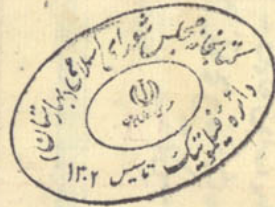 کتابخانه مجلس شورای اسلامی (بهارستان)
دائره
تاسیس ۱۳۰۲